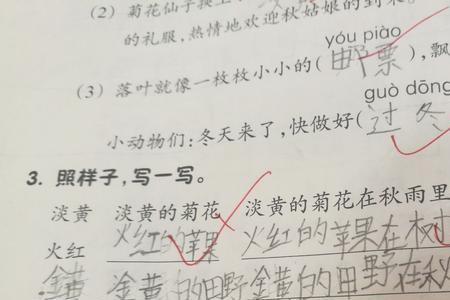 (2) 菊花仙子换上
的礼服,热情地欢迎秋姑娘的到来
yóu piào
(3) 落叶就像一枚枚小小的(邮票),飘
guò dōng
小动物们:冬天来了,快做好(过冬
3. 照样子,写一写。
淡黄 淡黄的菊花 淡黄的菊花在秋雨里
火红 火红的苹果 火红的苹果在树
金黄 金黄的田野 金黄的田野在秋